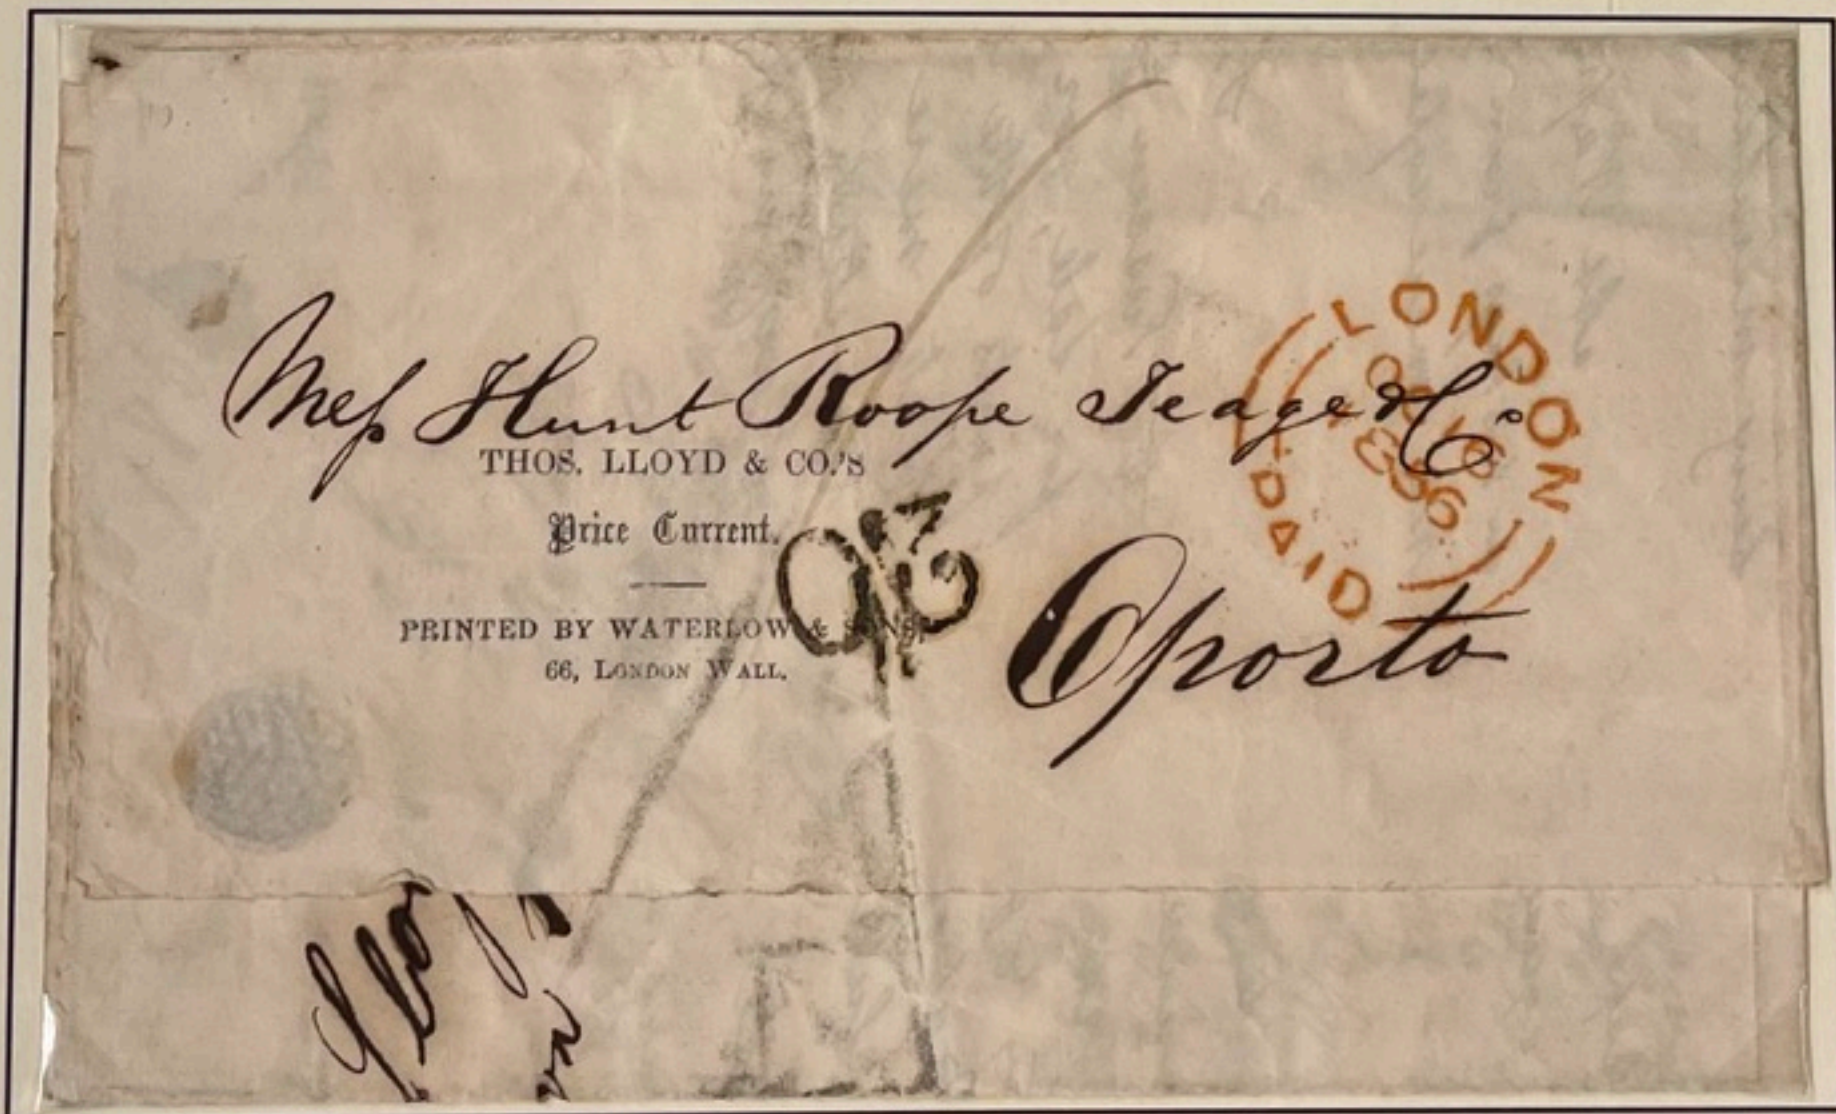 Mess Hunt Roope Teage & Co
THOS. LLOYD & CO.'S
Price Current.
PRINTED BY WATERLOW & SONS,
66, LONDON WALL.
Oporto
LONDON
1856
PAID